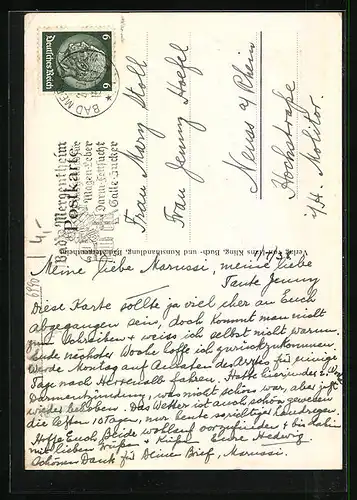 Deutsches Reich
6 6
BAD MERGENTHEIM
Bad Mergentheim
Postkarte
Magen Leber
Darm Fettsucht
Galle Zucker
Frau Mary Stoll
Frau Jenny Hoefel
Neuss a/Rhein
Hochstraße
i/H. Molitor.
Kling, Buch- und Kunsthandlung, Bad Mergentheim
4,-
Meine liebe Marussi, meine liebe
Tante Jenny
Diese Karte sollte ja viel eher an Euch
abgegangen sein, doch kommt man nicht
zum Schreiben + weiss ich selbst nicht warum.
Ende nächster Woche hoffe ich zurückzukommen.
Werde Montag auf Anraten des Arztes für einige
Tage nach Herrenalb fahren. Hatte hier
Darmentzündung, was nicht schön war, aber jetzt
wieder behoben. Das Wetter ist auch schön gewesen
die letzten 10 Tagen, nur heute Landregen.
Hoffe Euch Beide wohlauf vorzufinden + bis dahin
mit lieben Grüßen + Küßen Eure Hedwig
Schönen Dank für Deinen Brief, Marussi.